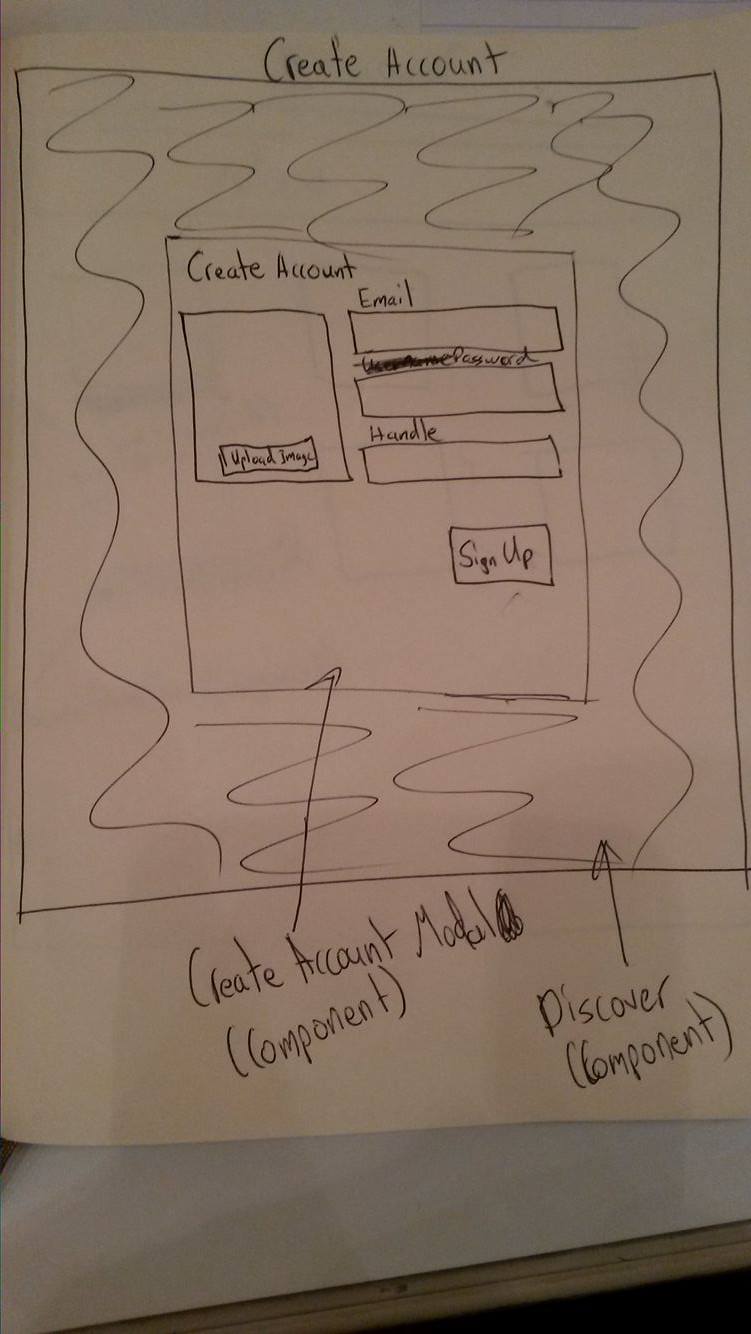 Create Account
Create Account
Email
Username Password
Handle
Upload Image
Sign Up
Create Account Modal
(Component)
Discover
(Component)